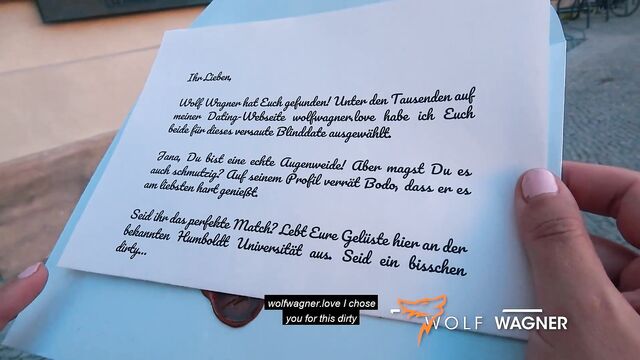 Ihr Lieben,
Wolf Wagner hat Euch gefunden! Unter den Tausenden auf
meiner Dating-Webseite wolfwagner.love habe ich Euch
beide für dieses versaute Blinddate ausgewählt.
Jana, Du bist eine echte Augenweide! Aber magst Du es
auch schmutzig? Auf seinem Profil verrät Bodo, dass er es
am liebsten hart genießt.
Seid ihr das perfekte Match? Lebt Eure Gelüste hier an der
bekannten Humboldt Universität aus. Seid ein bisschen
dirty...
wolfwagner.love I chose
you for this dirty
WOLF WAGNER